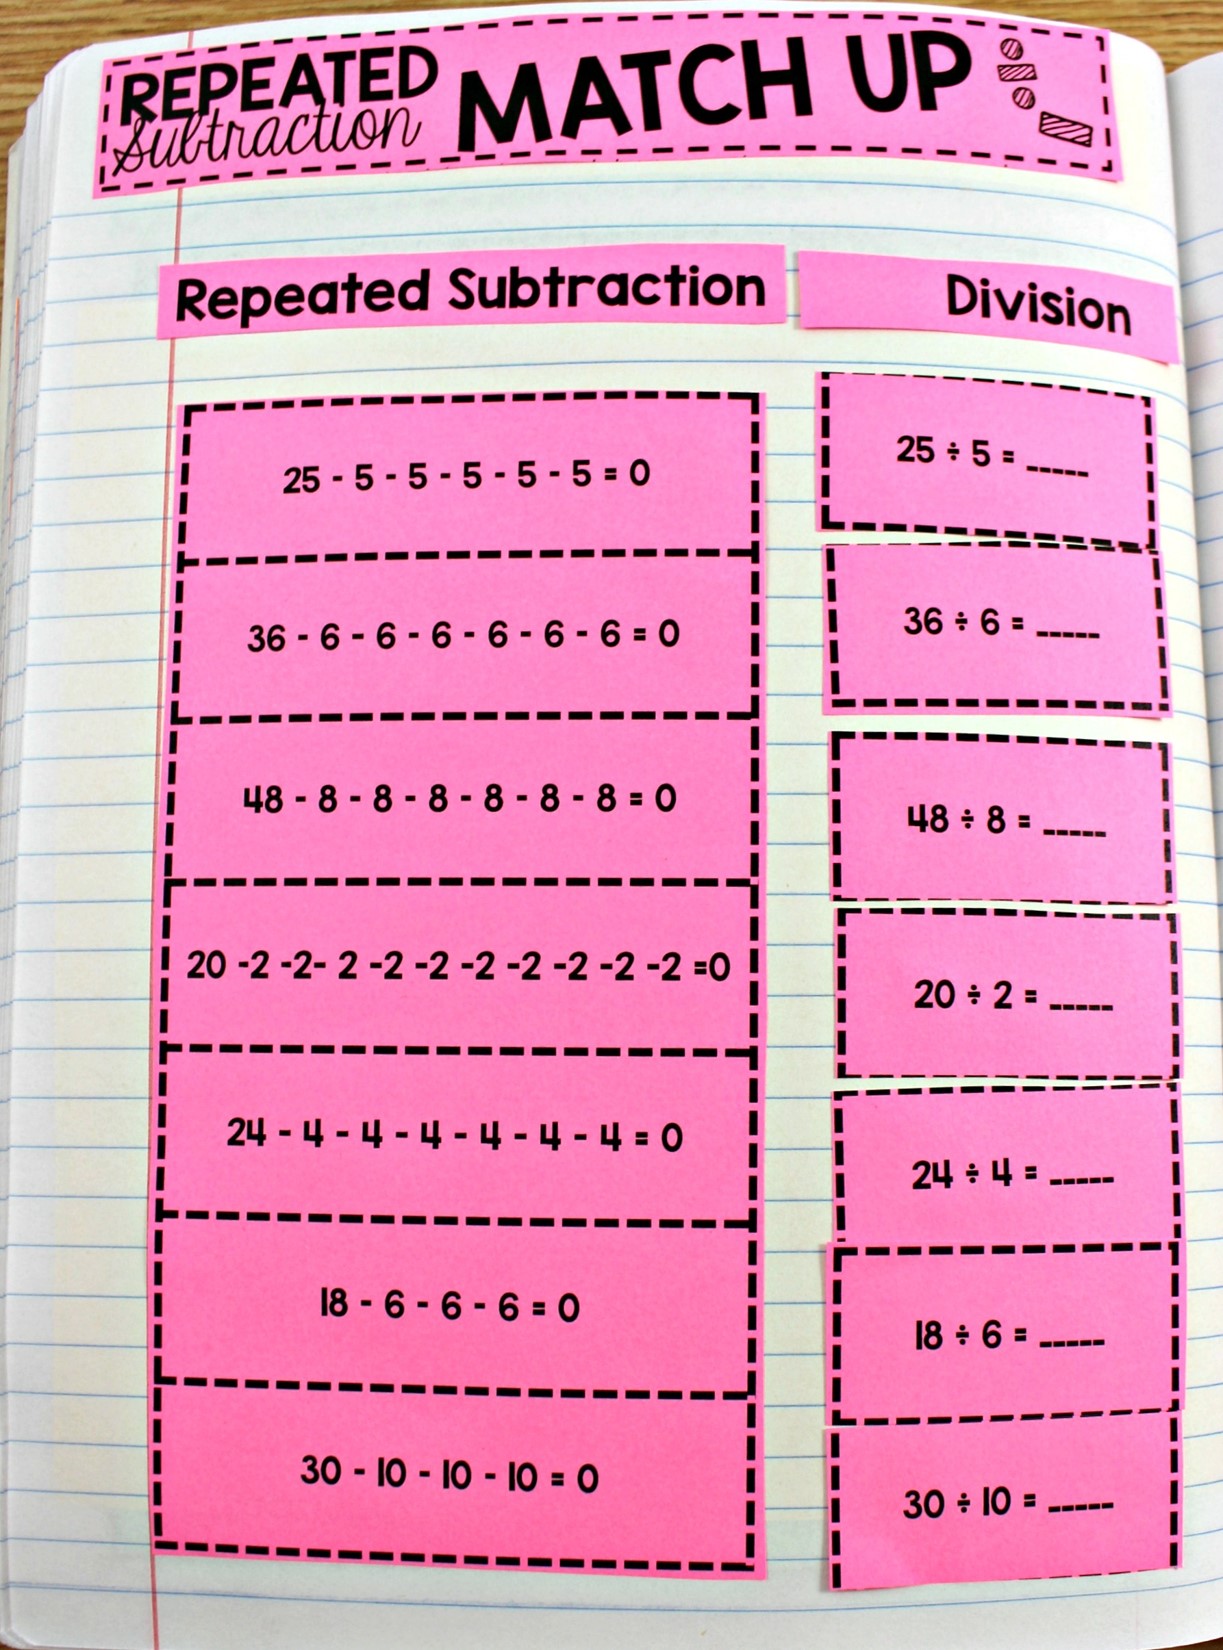 REPEATED
Subtraction
MATCH UP
Repeated Subtraction
Division
25 - 5 - 5 - 5 - 5 - 5 = 0
25 ÷ 5 = _____
36 - 6 - 6 - 6 - 6 - 6 - 6 = 0
36 ÷ 6 = _____
48 - 8 - 8 - 8 - 8 - 8 - 8 = 0
48 ÷ 8 = _____
20 -2 -2- 2 -2 -2 -2 -2 -2 -2 -2 =0
20 ÷ 2 = _____
24 - 4 - 4 - 4 - 4 - 4 - 4 = 0
24 ÷ 4 = _____
18 - 6 - 6 - 6 = 0
18 ÷ 6 = _____
30 - 10 - 10 - 10 = 0
30 ÷ 10 = _____